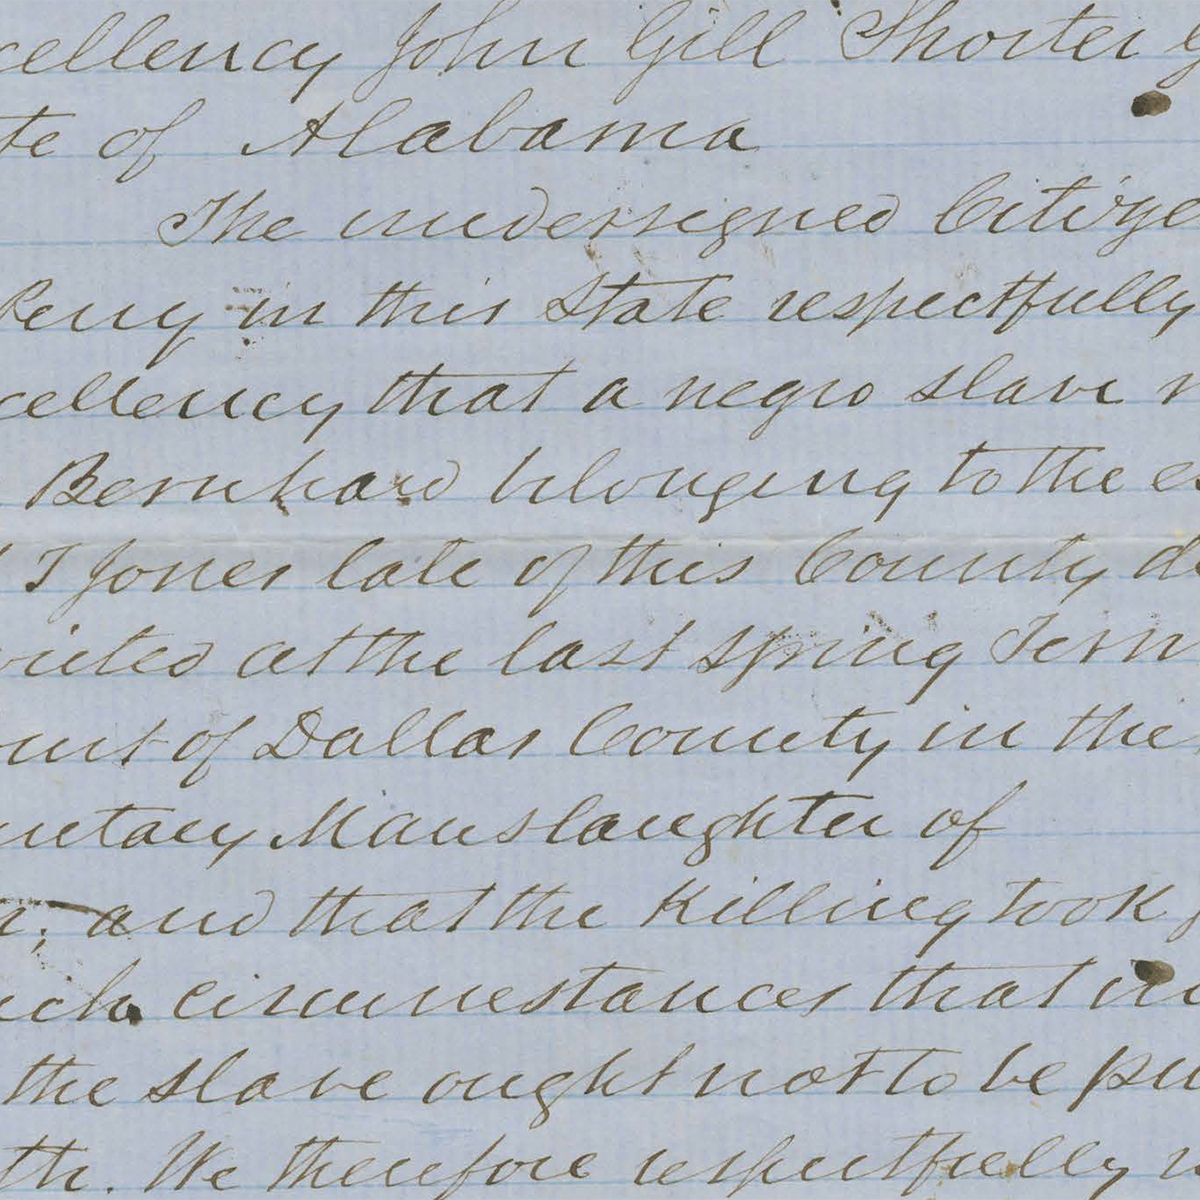 cellency John Gill Shorter G
te of Alabama
The undersigned Citize
Perry in this State respectfully
cellency that a negro slave n
Bernhard belonging to the es
T Jones late of this County de
victed at the last Spring Term
ourt of Dallas County in the
untary Manslaughter of
and that the killing took p
uch circumstances that in
the slave ought not to be pu
th. We therefore respectfully r